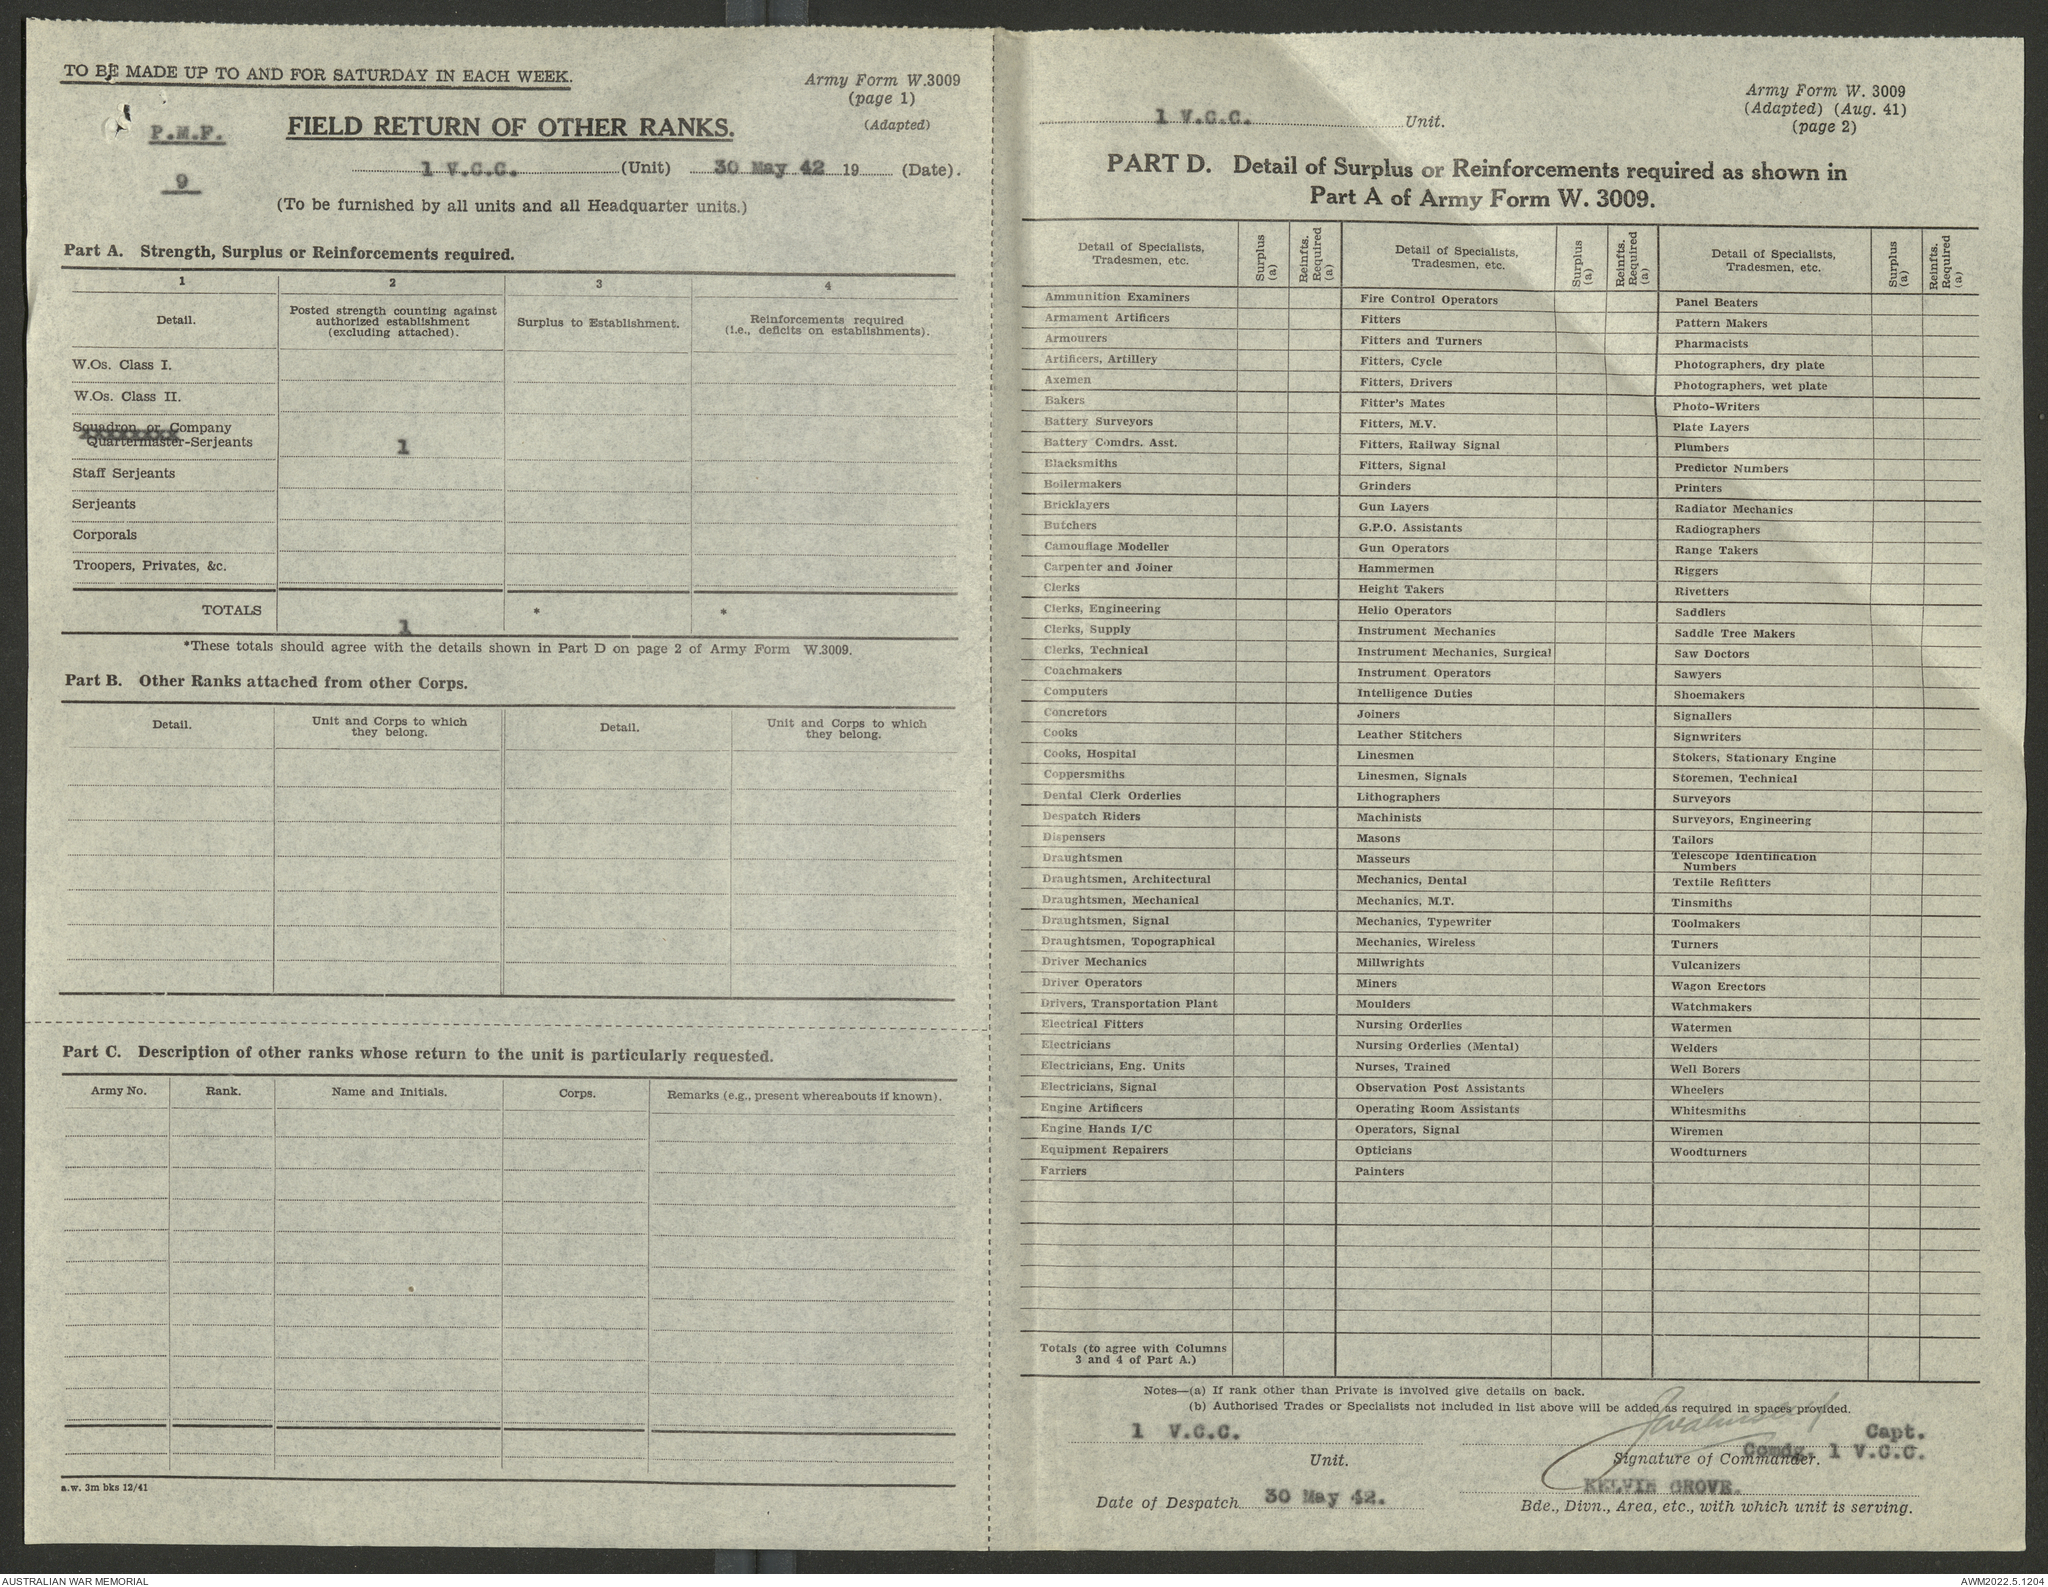 TO BE MADE UP TO AND FOR SATURDAY IN EACH WEEK.
Army Form W.3009
(page 1)
(Adapted)
P.M.F.
9
FIELD RETURN OF OTHER RANKS.
1 V.C.C. (Unit) 30 May 42 19 (Date).
(To be furnished by all units and all Headquarter units.)
Part A. Strength, Surplus or Reinforcements required.
1 2 3 4
Detail.
Posted strength counting against
authorized establishment
(excluding attached).
Surplus to Establishment.
Reinforcements required
(i.e., deficits on establishments).
W.Os. Class I.
W.Os. Class II.
Squadron or Company
xxxxxxxx
Quartermaster-Serjeants 1
Staff Serjeants
Serjeants
Corporals
Troopers, Privates, &c.
TOTALS 1 * *
*These totals should agree with the details shown in Part D on page 2 of Army Form W.3009.
Part B. Other Ranks attached from other Corps.
Detail.
Unit and Corps to which
they belong.
Detail.
Unit and Corps to which
they belong.
Part C. Description of other ranks whose return to the unit is particularly requested.
Army No. Rank. Name and Initials. Corps. Remarks (e.g., present whereabouts if known).
a.w. 3m bks 12/41
1 V.C.C. Unit.
Army Form W. 3009
(Adapted) (Aug. 41)
(page 2)
PART D. Detail of Surplus or Reinforcements required as shown in
Part A of Army Form W. 3009.
Detail of Specialists,
Tradesmen, etc.
Surplus
(a)
Reinfts.
Required
(a)
Ammunition Examiners
Armament Artificers
Armourers
Artificers, Artillery
Axemen
Bakers
Battery Surveyors
Battery Comdrs. Asst.
Blacksmiths
Boilermakers
Bricklayers
Butchers
Camouflage Modeller
Carpenter and Joiner
Clerks
Clerks, Engineering
Clerks, Supply
Clerks, Technical
Coachmakers
Computers
Concretors
Cooks
Cooks, Hospital
Coppersmiths
Dental Clerk Orderlies
Despatch Riders
Dispensers
Draughtsmen
Draughtsmen, Architectural
Draughtsmen, Mechanical
Draughtsmen, Signal
Draughtsmen, Topographical
Driver Mechanics
Driver Operators
Drivers, Transportation Plant
Electrical Fitters
Electricians
Electricians, Eng. Units
Electricians, Signal
Engine Artificers
Engine Hands I/C
Equipment Repairers
Farriers
Detail of Specialists,
Tradesmen, etc.
Surplus
(a)
Reinfts.
Required
(a)
Fire Control Operators
Fitters
Fitters and Turners
Fitters, Cycle
Fitters, Drivers
Fitter's Mates
Fitters, M.V.
Fitters, Railway Signal
Fitters, Signal
Grinders
Gun Layers
G.P.O. Assistants
Gun Operators
Hammermen
Height Takers
Helio Operators
Instrument Mechanics
Instrument Mechanics, Surgical
Instrument Operators
Intelligence Duties
Joiners
Leather Stitchers
Linesmen
Linesmen, Signals
Lithographers
Machinists
Masons
Masseurs
Mechanics, Dental
Mechanics, M.T.
Mechanics, Typewriter
Mechanics, Wireless
Millwrights
Miners
Moulders
Nursing Orderlies
Nursing Orderlies (Mental)
Nurses, Trained
Observation Post Assistants
Operating Room Assistants
Operators, Signal
Opticians
Painters
Detail of Specialists,
Tradesmen, etc.
Surplus
(a)
Reinfts.
Required
(a)
Panel Beaters
Pattern Makers
Pharmacists
Photographers, dry plate
Photographers, wet plate
Photo-Writers
Plate Layers
Plumbers
Predictor Numbers
Printers
Radiator Mechanics
Radiographers
Range Takers
Riggers
Rivetters
Saddlers
Saddle Tree Makers
Saw Doctors
Sawyers
Shoemakers
Signallers
Signwriters
Stokers, Stationary Engine
Storemen, Technical
Surveyors
Surveyors, Engineering
Tailors
Telescope Identification
Numbers
Textile Refitters
Tinsmiths
Toolmakers
Turners
Vulcanizers
Wagon Erectors
Watchmakers
Watermen
Welders
Well Borers
Wheelers
Whitesmiths
Wiremen
Woodturners
Totals (to agree with Columns
3 and 4 of Part A.)
Notes—(a) If rank other than Private is involved give details on back.
(b) Authorised Trades or Specialists not included in list above will be added as required in spaces provided.
1 V.C.C.
Unit.
Capt.
Comdg. 1 V.C.C.
Signature of Commander.
KELVIN GROVE.
Date of Despatch 30 May 42.
Bde., Divn., Area, etc., with which unit is serving.
AUSTRALIAN WAR MEMORIAL
AWM2022.5.1204